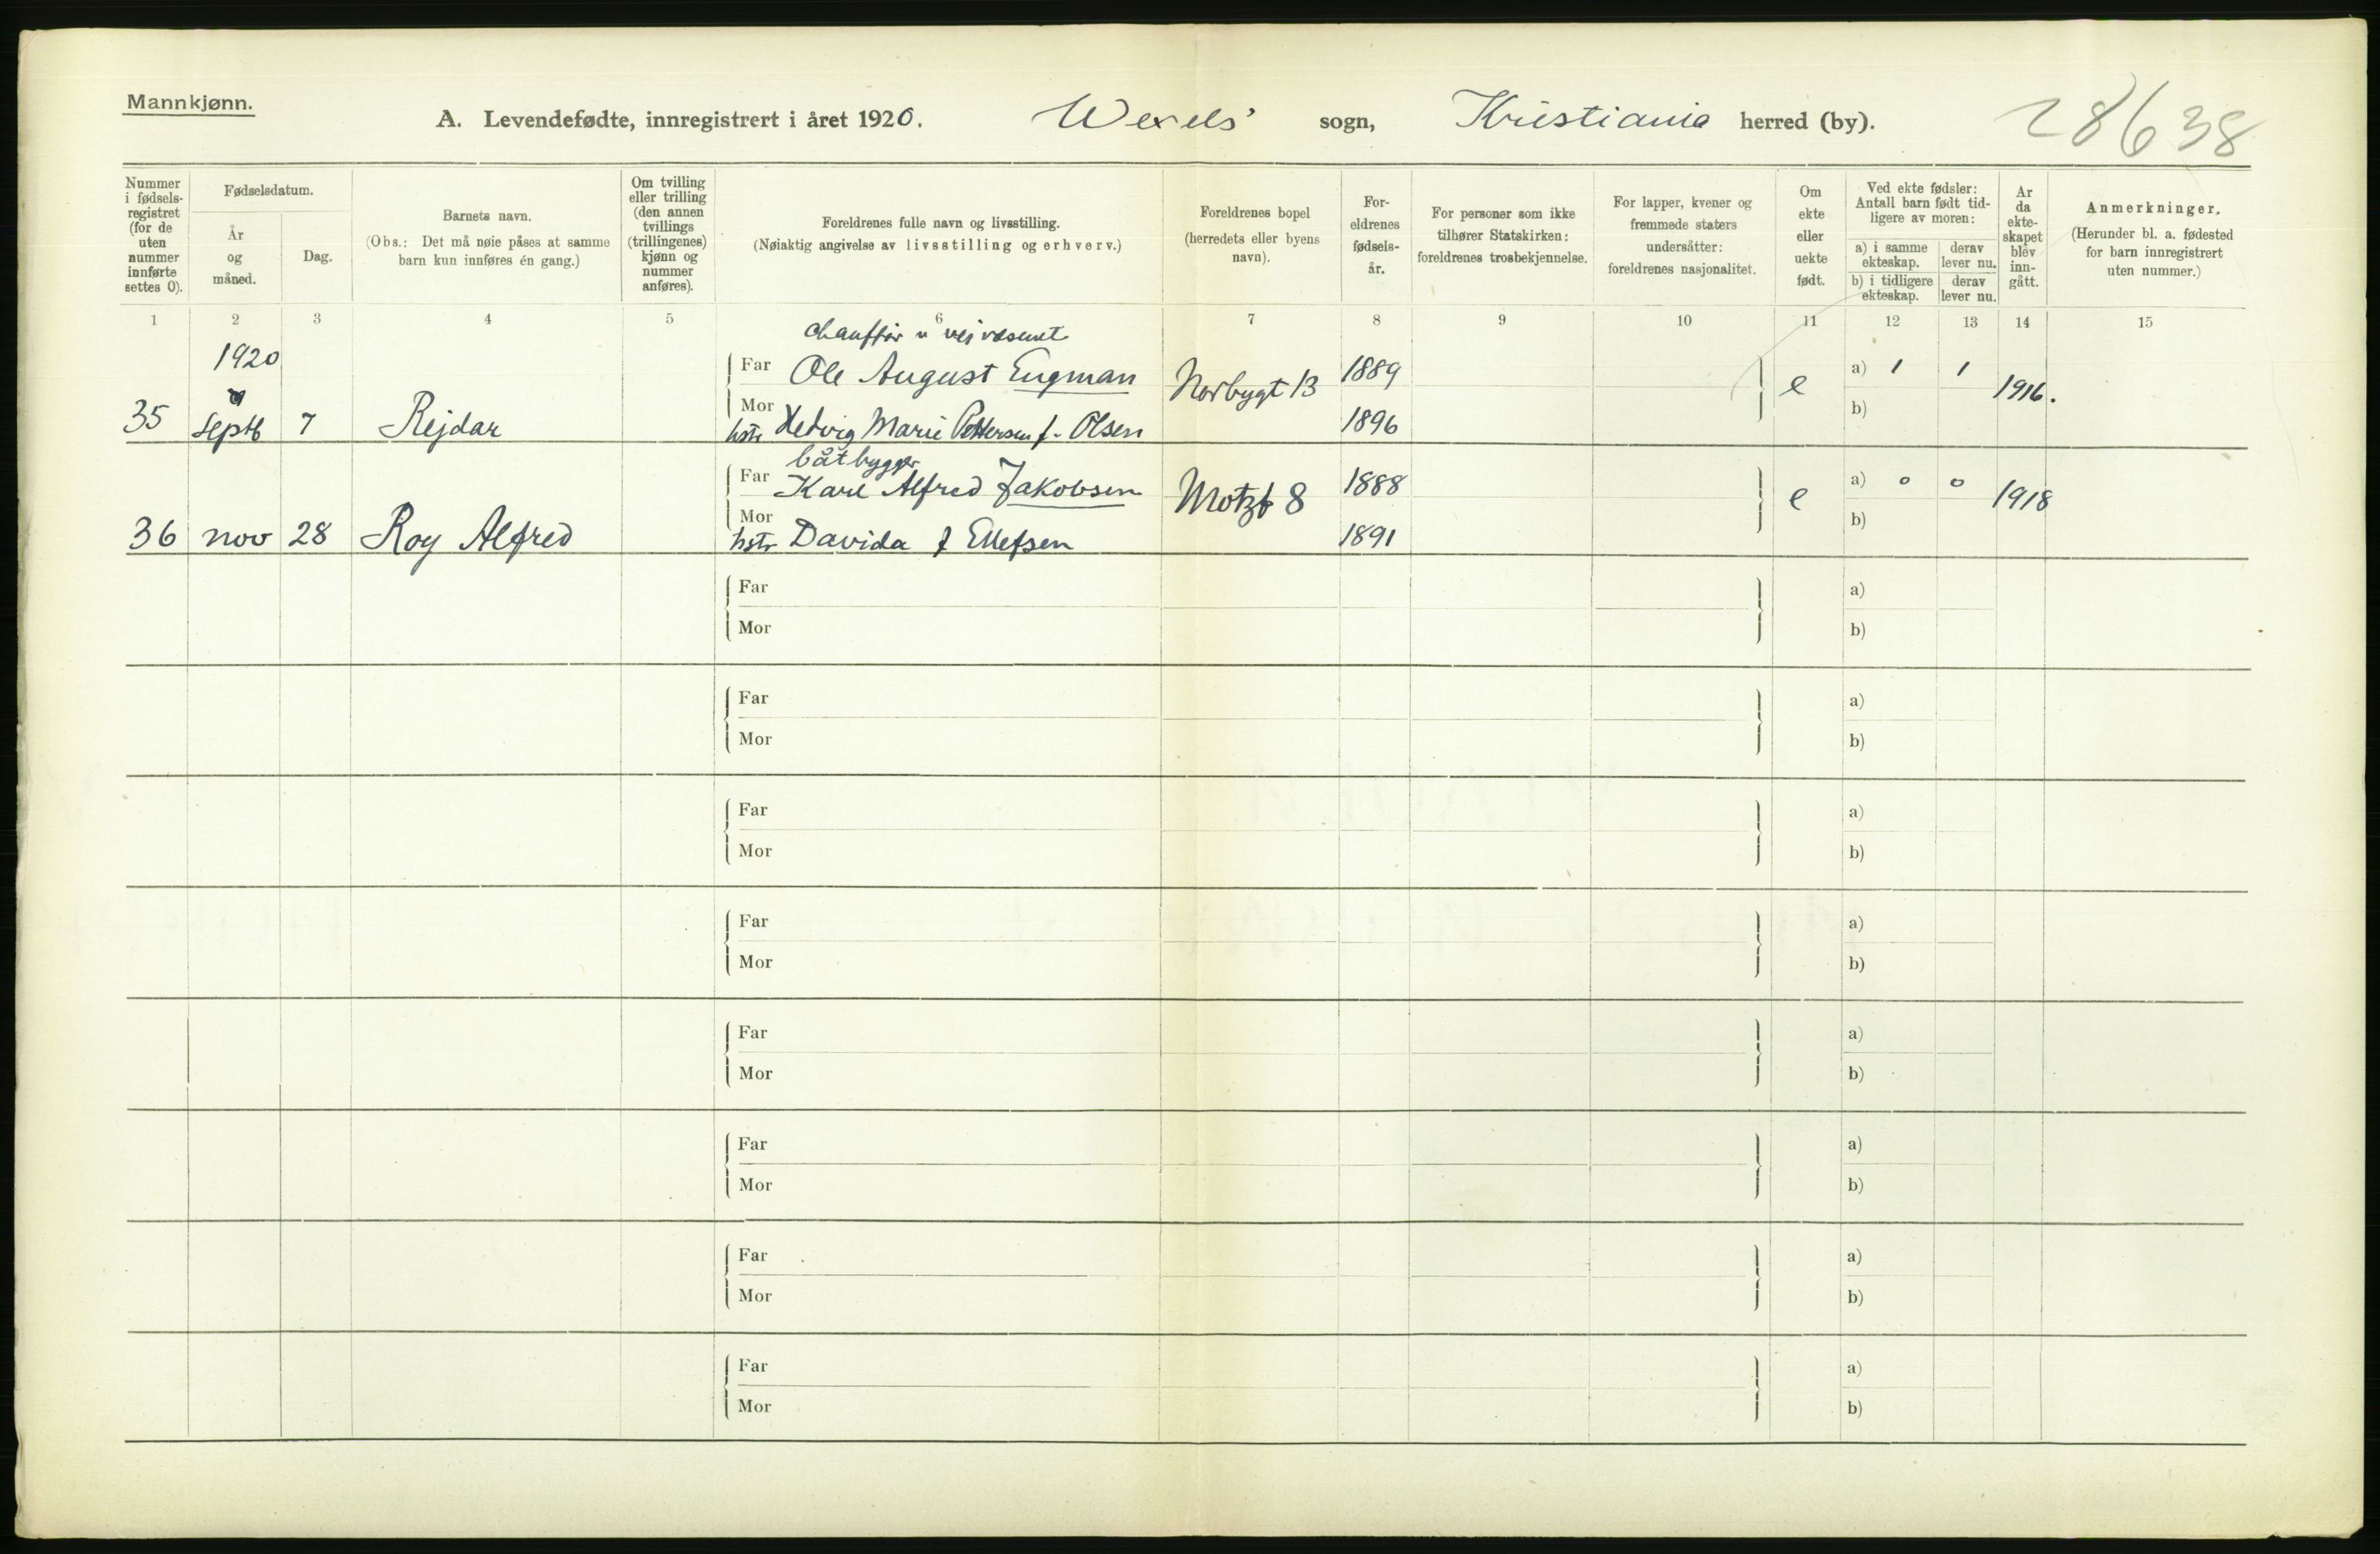 Mannkjønn.
A. Levendefødte, innregistrert i året 1920. Wexels' sogn, Kristiania herred (by). 28638
Nummer i fødsels-registret (for de uten nummer innførte settes 0).
Fødselsdatum.
År og måned.
Dag.
Barnets navn.
(Obs.: Det må nøie påses at samme barn kun innføres én gang.)
Om tvilling eller trilling (den annen tvillings (trillingenes) kjønn og nummer anføres).
Foreldrenes fulle navn og livsstilling.
(Nøiaktig angivelse av livsstilling og erhverv.)
Foreldrenes bopel (herredets eller byens navn).
For-eldrenes fødsels-år.
For personer som ikke tilhører Statskirken: foreldrenes trosbekjennelse.
For lapper, kvener og fremmede staters undersåtter: foreldrenes nasjonalitet.
Om ekte eller uekte født.
Ved ekte fødsler: Antall barn født tid-ligere av moren:
a) i samme ekteskap. derav lever nu.
b) i tidligere ekteskap. derav lever nu.
Ar da ekte-skapet blev inn-gått.
Anmerkninger.
(Herunder bl. a. fødested for barn innregistrert uten nummer.)
1 2 3 4 5 6 7 8 9 10 11 12 13 14 15
chauffør v veivæsenet
1920
Far Ole August Engman Norbygt 13 1889 e a) 1 1 1916.
35 septb 7 Rejdar
Mor hstr Hedvig Marie Pettersen f. Olsen 1896 b)
båtbygger
Far Karl Alfred Jakobsen Motzf 8 1888 e a) 0 0 1918
36 nov 28 Roy Alfred
Mor hstr Davida f Ellefsen 1891 b)
Far a)
Mor b)
Far a)
Mor b)
Far a)
Mor b)
Far a)
Mor b)
Far a)
Mor b)
Far a)
Mor b)
Far a)
Mor b)
Far a)
Mor b)